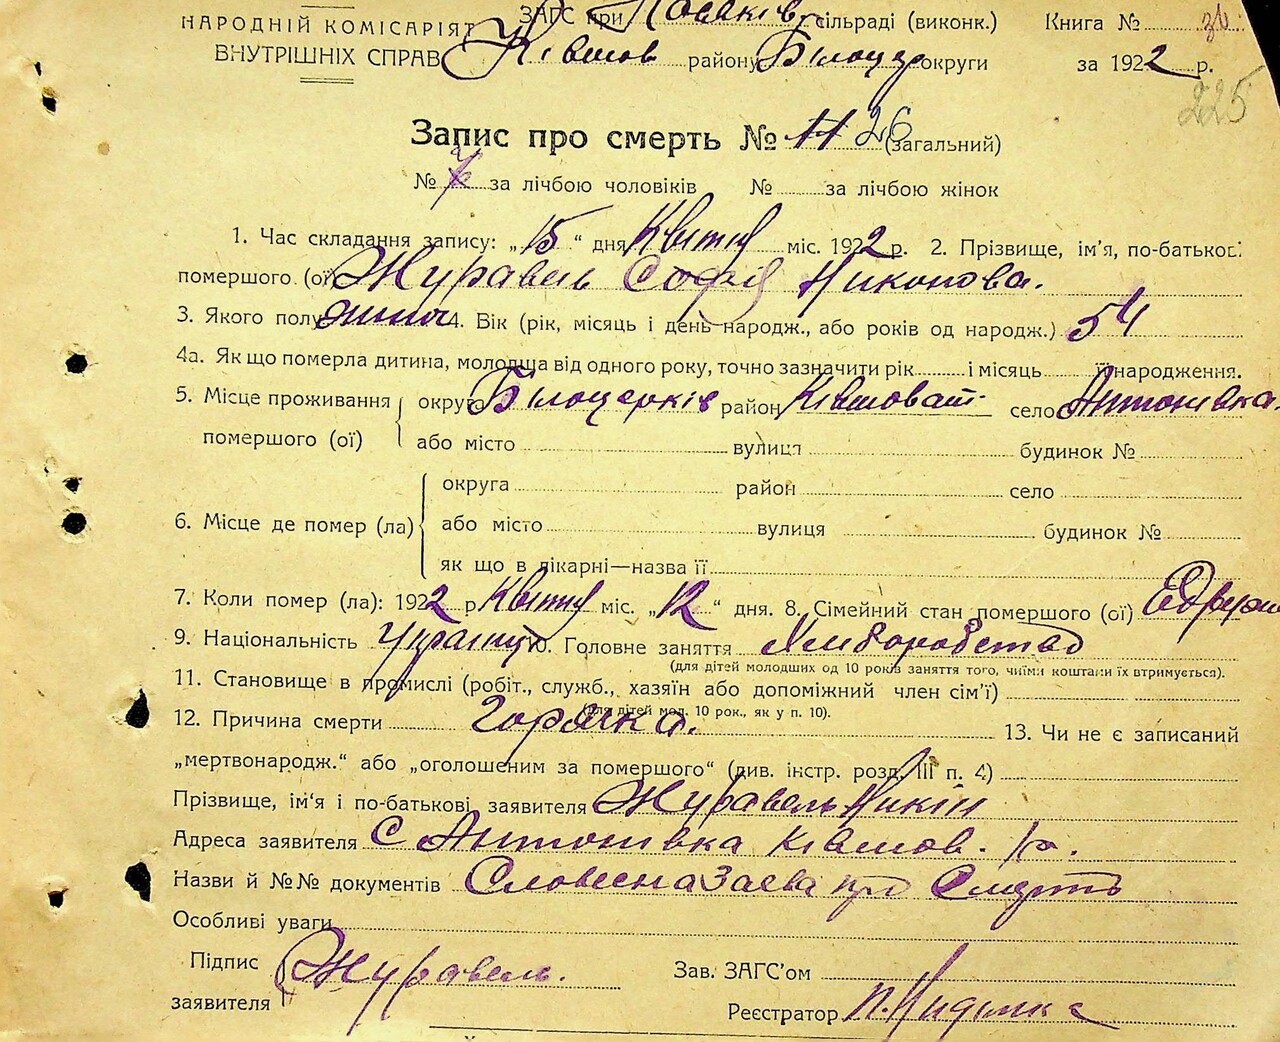 НАРОДНІЙ КОМІСАРІЯТ ЗАГС при сільраді (виконк.) Книга №
ВНУТРІШНІХ СПРАВ Ківшов району Білоцер округи за 1922 р.
225
Запис про смерть № 11 26 (загальний)
№ за лічбою чоловіків № за лічбою жінок
1. Час складання запису: „15“ дня Квітня міс. 1922 р. 2. Прізвище, ім'я, по-батькові
помершого (ої) Журавель Софія Никонова.
3. Якого полу 4. Вік (рік, місяць і день народж., або років од народж.) 54
4а. Як що померла дитина, молодща від одного року, точно зазначити рік і місяць її народження.
5. Місце проживання округа Білоцерків район Ківшоват село Антонівка.
помершого (ої) або місто вулиця будинок №
округа район село
6. Місце де помер (ла) або місто вулиця будинок №
як що в лікарні—назва її
7. Коли помер (ла): 1922 р. Квітня міс. „12“ дня. 8. Сімейний стан помершого (ої)
9. Національність 10. Головне заняття Хліборобство
(для дітей молодших од 10 років заняття того, чиїми коштами їх втримується).
11. Становище в промислі (робіт., служб., хазяїн або допоміжний член сім'ї)
(для дітей мол. 10 рок., як у п. 10).
12. Причина смерти Горячка. 13. Чи не є записаний
„мертвонародж.“ або „оголошеним за помершого“ (див. інстр. розд. III п. 4)
Прізвище, ім'я і по-батькові заявителя Журавель Никін
Адреса заявителя С Антонівка Ківшов. р.
Назви й №№ документів Словесна заєва про Смерть
Особливі уваги
Підпис Журавель. Зав. ЗАГС'ом
заявителя Реєстратор